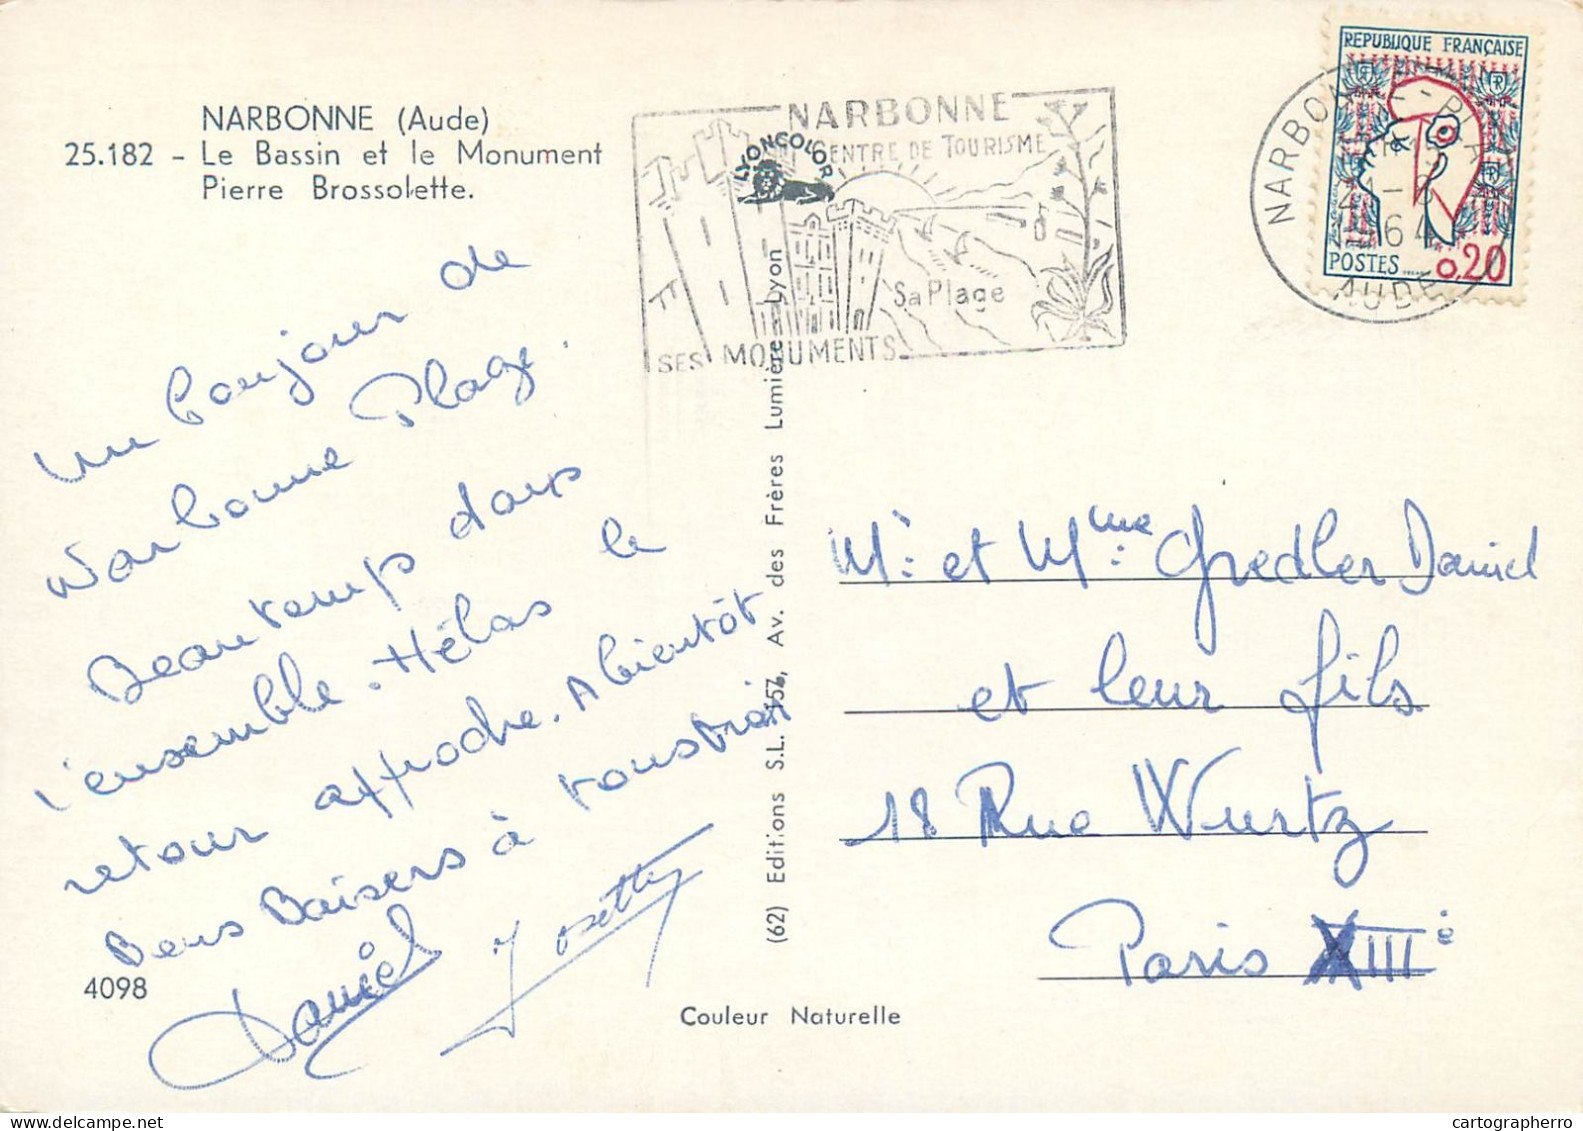 NARBONNE (Aude)
25.182 - Le Bassin et le Monument
Pierre Brossolette.
NARBONNE
CENTRE DE TOURISME
LYONCOLOR
Sa Plage
SES MONUMENTS
REPUBLIQUE FRANÇAISE
POSTES 0,20
NARBONNE
64
AUDE
Un bonjour de
Narbonne Plage.
Beau temps dans
l'ensemble. Hélas le
retour approche. A bientôt
Bons Baisers à tous trois
Daniel Josette
4098
(62) Editions S.L. 157, Av. des Frères Lumière-Lyon
Couleur Naturelle
Mr et Mme: Gredler Daniel
et leur fils
18 Rue Wurtz
Paris XIIIè
cartographerro